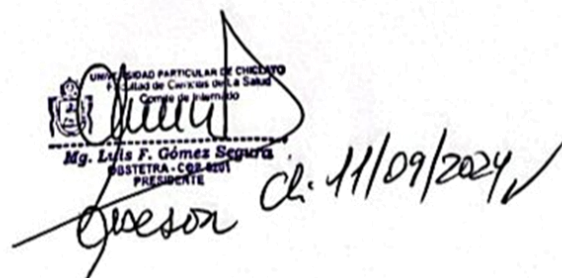 UNIVERSIDAD PARTICULAR DE CHICLAYO
Facultad de Ciencias de La Salud
Comité de Internado
Mg. Luis F. Gómez Segura
OBSTETRA - COP
PRESIDENTE
Asesor
Ch. 11/09/2024